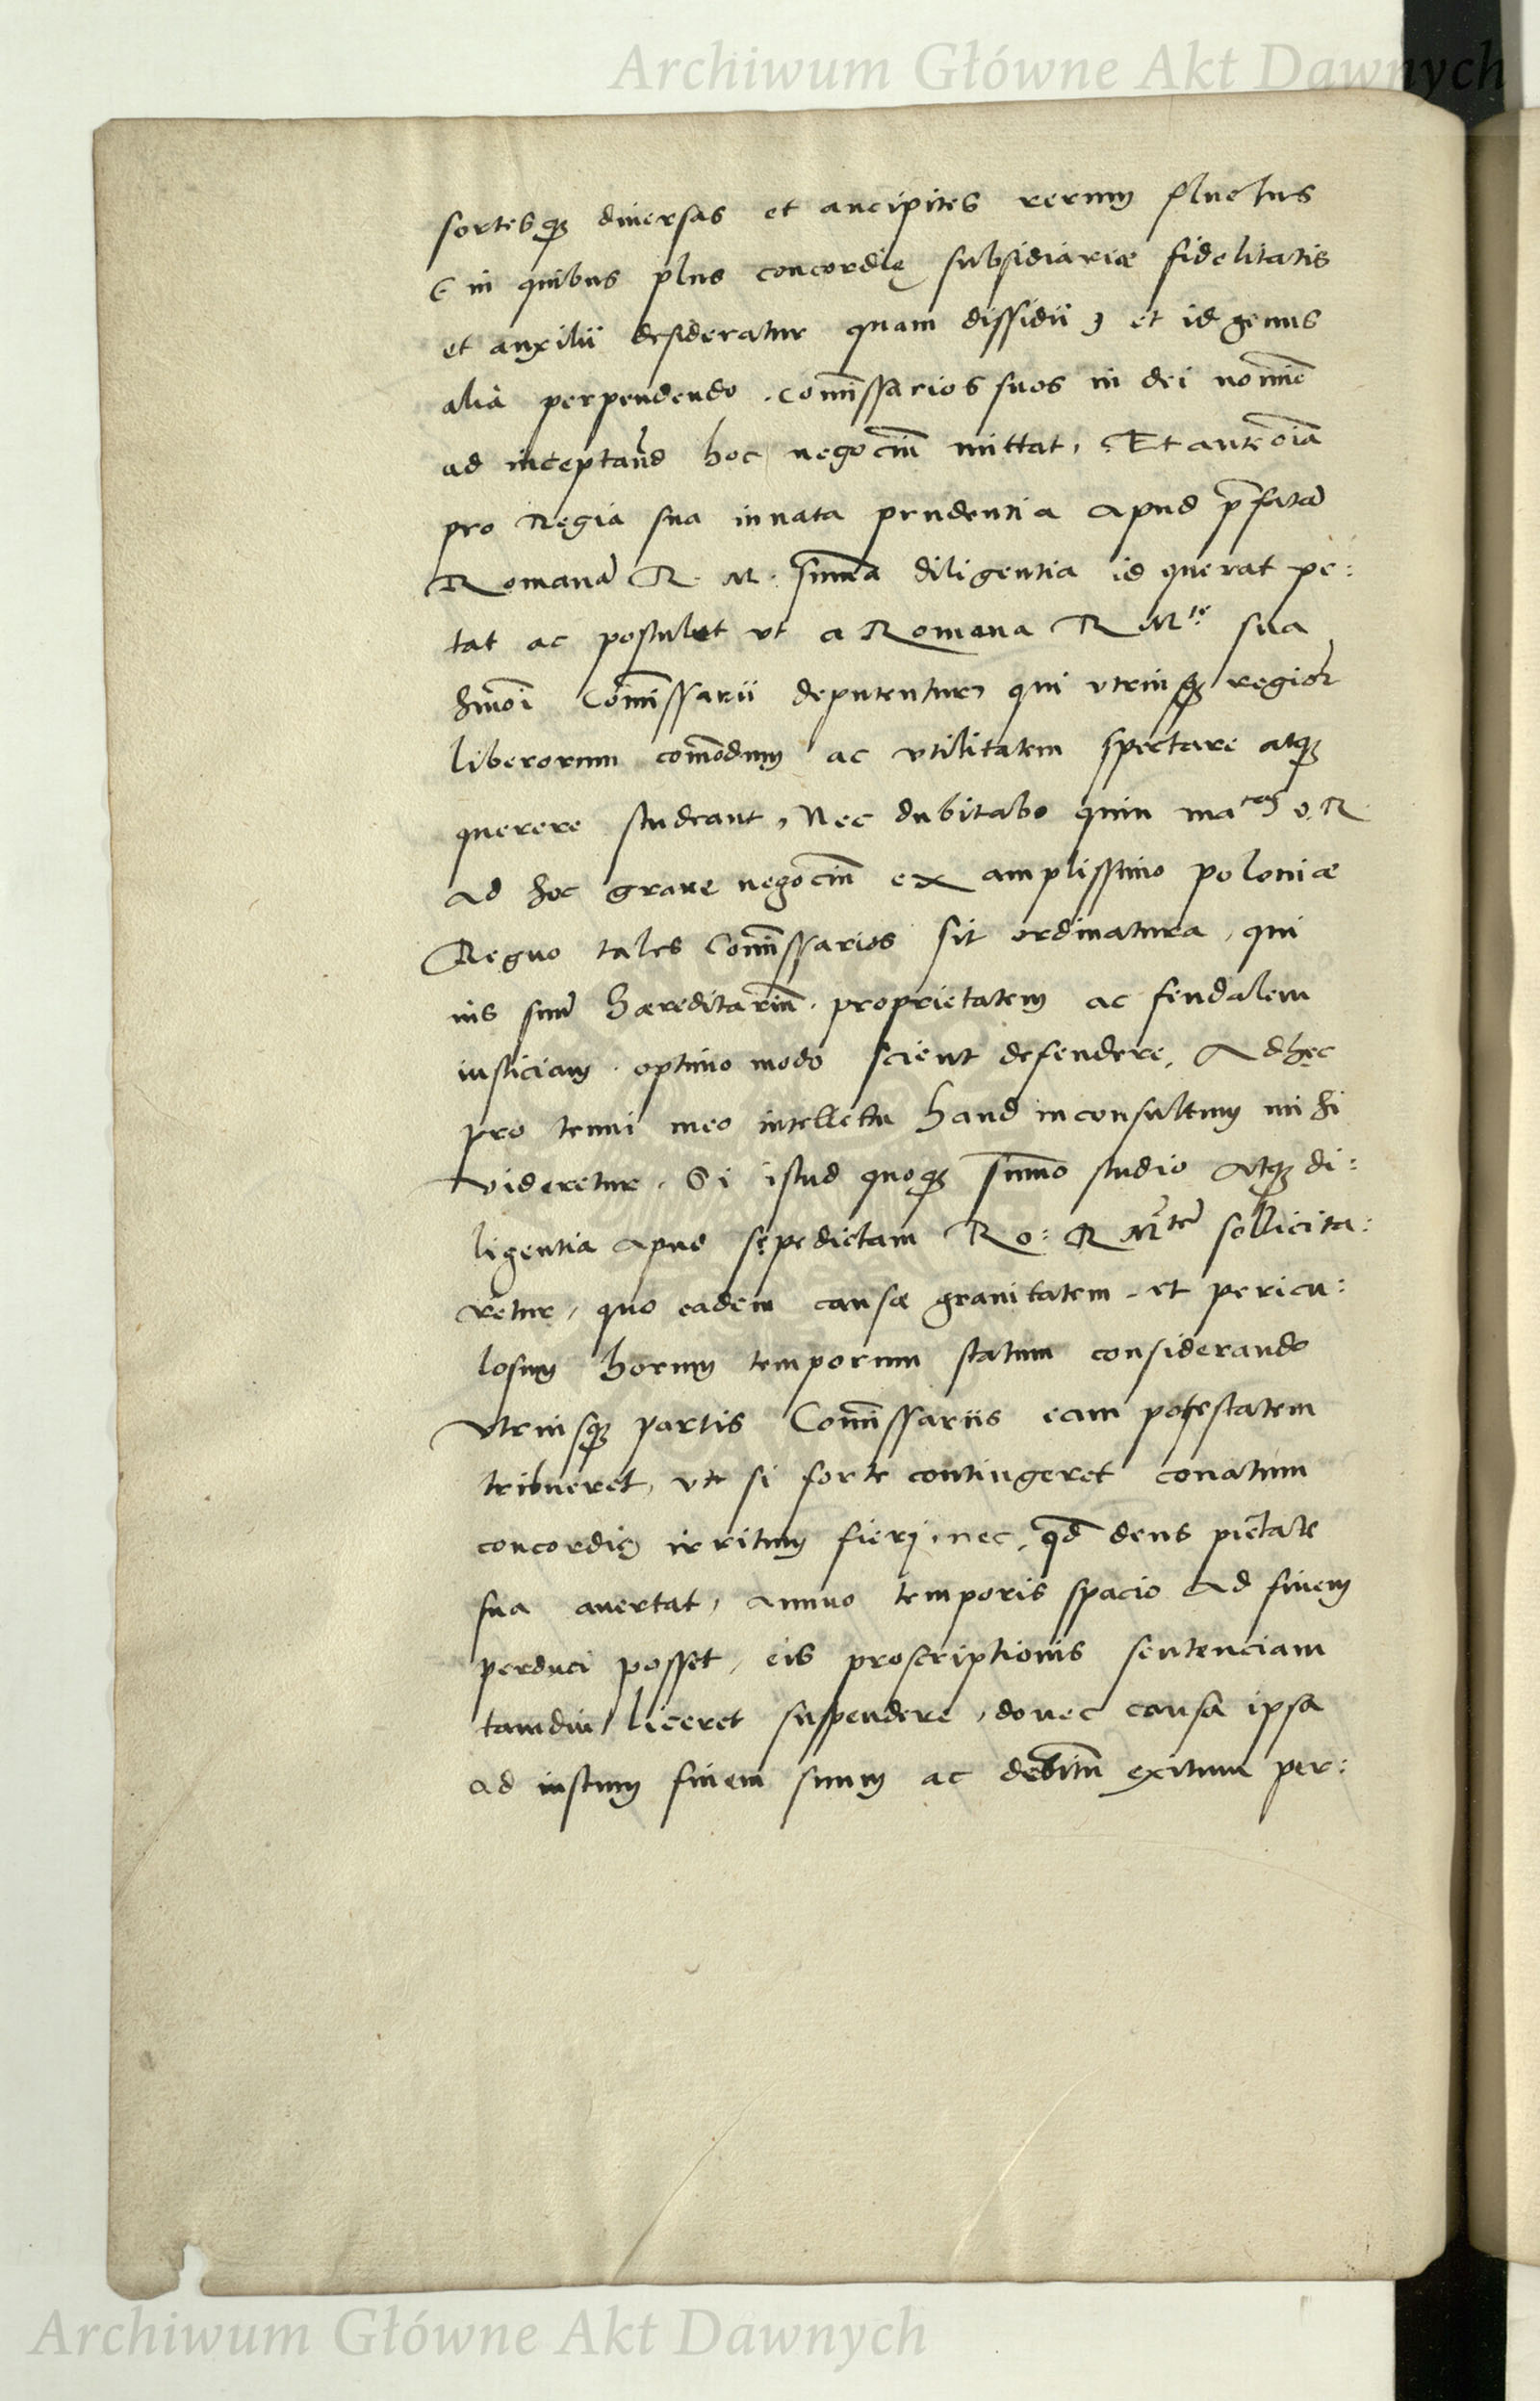 Archiwum Główne Akt Dawnych
sortesq₃ diuersas et ancipites rerum fluctus
(in quibus plus concordię subsidiariæ fidelitatis
et auxilii desideratur quam dissidii) et id genus
alia perpendendo. Com̄issarios suos in dei nomīe
ad inceptand̄ hoc negociū mittat, Et ante oīa
pro Regia sua innata prudentia apud p̄fatā
Romanā R. M. sum̄a diligentia id querat pe:
tat ac postulet vt a Romana R Mte sua
hmōi Com̄issarii deputentur, qui vtriusq₃ regioꝝ
liberorum com̄odum ac vtilitatem spectare atq₃
querere studeant, Nec dubitabo quin matas v. R
ad hoc graue negociū ex amplissimo poloniæ
Regno tales Com̄issarios sit ordinatura, qui
ius suū hæreditariū, proprietatem ac feudalem
iusticiam optimo modo scient defendere, Adhęc
pro tenui meo intellectu haud inconsultum mihi
videretur, Si istud quoq₃ sum̄o studio atq₃ di:
ligentia apud sępedictam Ro: R Mtē sollicita:
retur, quo eadem causæ grauitatem et pericu:
losum horum temporum statum considerando
vtriusq₃ partis Com̄issariis eam potestatem
tribueret, vt si forte contingeret conatum
concordię irritum fieri, nec, qd̄ deus pietate
sua auertat, annuo temporis spacio ad finem
perduci posset, eis proscriptionis sentenciam
tamdiu liceret suspendere, donec causa ipsa
ad iustum finem suum ac debitū exitum per:
Archiwum Główne Akt Dawnych